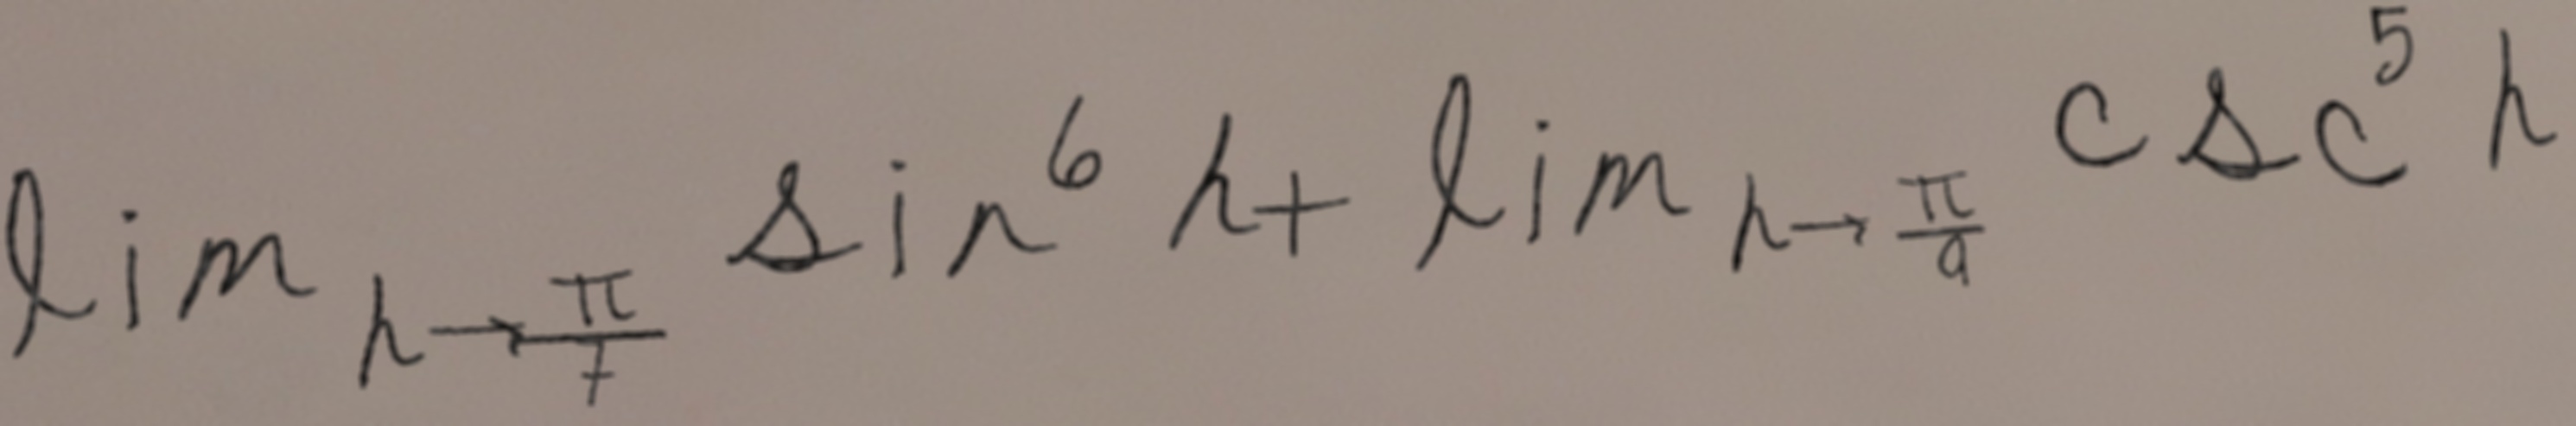 \lim_{h \to \frac{\pi}{7}} \sin^6 h + \lim_{h \to \frac{\pi}{9}} \csc^5 h